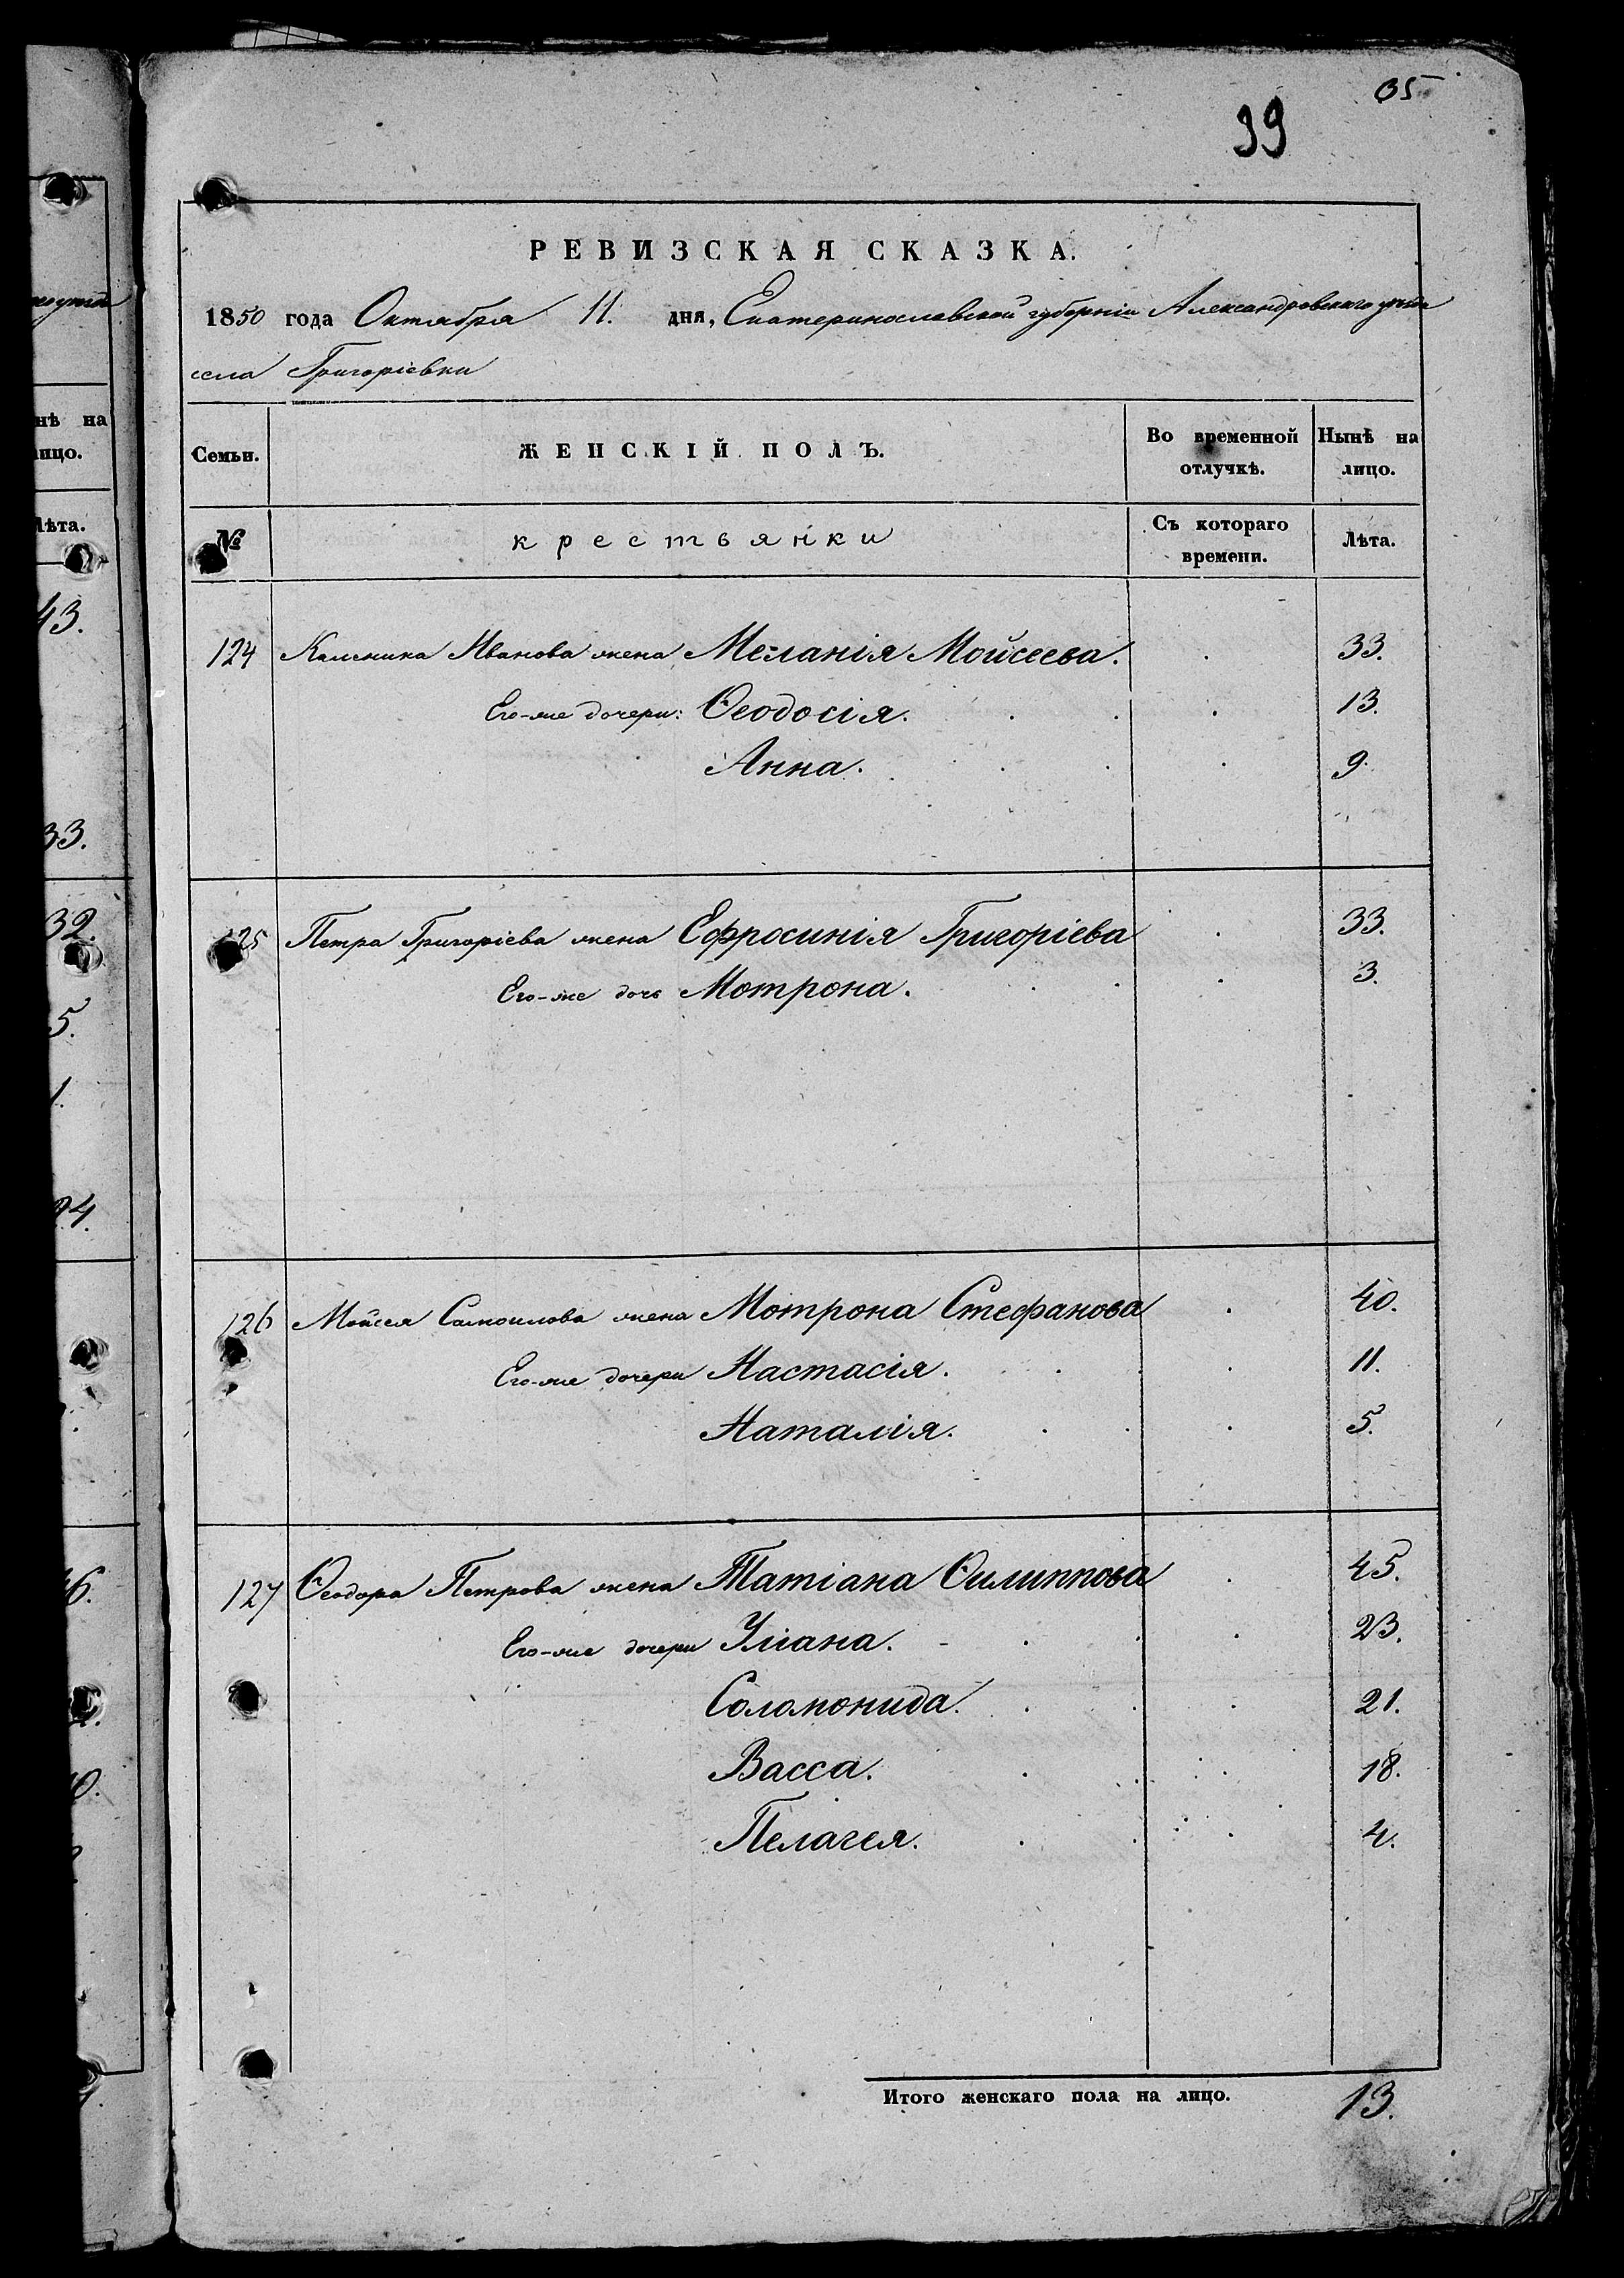 35
39
РЕВИЗСКАЯ СКАЗКА.
1850 года Октября 11. дня, Екатеринославской губерніи Александровскаго уѣзда
села Григоріевки
Семьи. ЖЕНСКІЙ ПОЛЪ. Во временной отлучкѣ. Нынѣ на лицо.
№ крестьянки Съ котораго времени. Лѣта.
124 Каленика Иванова жена Меланія Мойсеева. 33.
Его-же дочери: Ѳеодосія. 13.
Анна. 9.
125 Петра Григоріева жена Ефросинія Григоріева 33.
Его-же дочь Мотрона. 3.
126 Мойсея Самоилова жена Мотрона Стефанова 40.
Его-же дочери Настасія. 11.
Наталія. 5.
127 Ѳеодора Петрова жена Татіана Ѳилиппова 45.
Его-же дочери Уліана. 23.
Соломонида. 21.
Васса. 18.
Пелагея. 4.
Итого женскаго пола на лицо. 13.
нѣ на
лицо.
Лѣта.
43.
33.
32.
5.
1.
24.